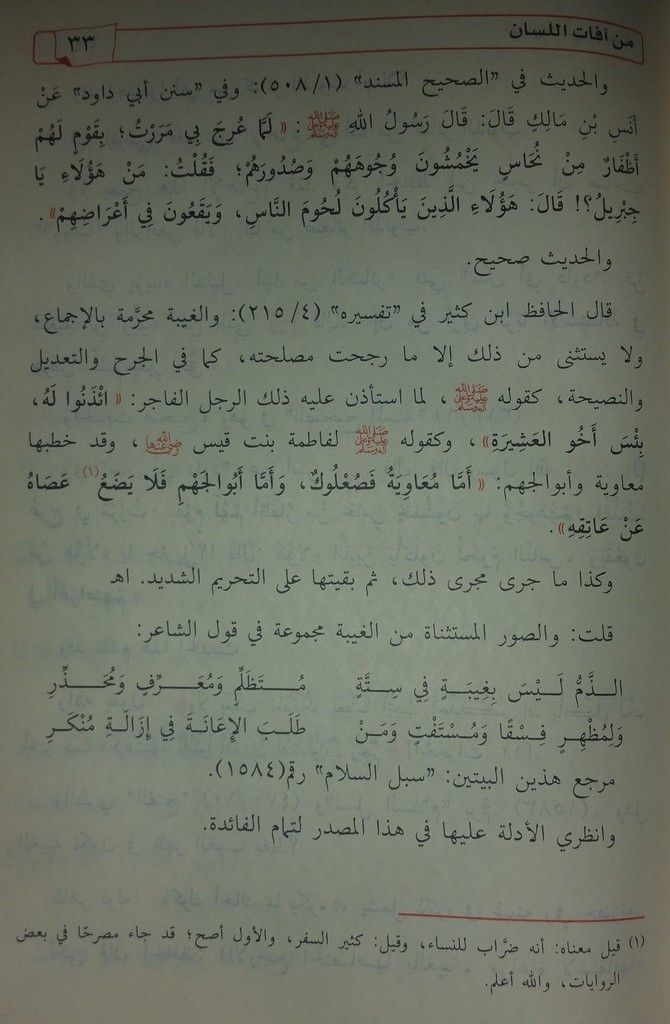 من آفات اللسان ٣٣
والحديث في "الصحيح المسند" (٥٠٨/١): وفي "سنن أبي داود" عَنْ
أَنَسِ بْنِ مَالِكٍ قَالَ: قَالَ رَسُولُ اللهِ ﷺ: «لَمَّا عُرِجَ بِي مَرَرْتُ؛ بِقَوْمٍ لَهُمْ
أَظْفَارٌ مِنْ نُحَاسٍ يَخْمُشُونَ وُجُوهَهُمْ وَصُدُورَهُمْ؛ فَقُلْتُ: مَنْ هَؤُلَاءِ يَا
جِبْرِيلُ؟! قَالَ: هَؤُلَاءِ الَّذِينَ يَأْكُلُونَ لُحُومَ النَّاسِ، وَيَقَعُونَ فِي أَعْرَاضِهِمْ».
والحديث صحيح.
قال الحافظ ابن كثير في "تفسيره" (٢١٥/٤): والغيبة محرَّمة بالإجماع،
ولا يستثنى من ذلك إلا ما رجحت مصلحته، كما في الجرح والتعديل
والنصيحة، كقوله ﷺ، لما استأذن عليه ذلك الرجل الفاجر: «ائْذَنُوا لَهُ،
بِئْسَ أَخُو العَشِيرَةِ»، وكقوله ﷺ لفاطمة بنت قيس رضي الله عنها، وقد خطبها
معاوية وأبوالجهم: «أَمَّا مُعَاوِيَةُ فَصُعْلُوكٌ، وَأَمَّا أَبُوالجَهْمِ فَلَا يَضَعُ(١) عَصَاهُ
عَنْ عَاتِقِهِ».
وكذا ما جرى مجرى ذلك، ثم بقيتها على التحريم الشديد. اهـ
قلت: والصور المستثناة من الغيبة مجموعة في قول الشاعر:
الـذَّمُّ لَـيْسَ بِغِيبَـةٍ فِي سِـتَّةٍ مُـتَظَلِّمٍ وَمُعَـرِّفٍ وَمُحَـذِّرِ
وَلِمُظْهِرٍ فِـسْقًا وَمُسْتَفْتٍ وَمَـنْ طَلَبَ الإِعَانَـةَ فِي إِزَالَـةِ مُنْكَـرِ
مرجع هذين البيتين: "سبل السلام" رقم(١٥٨٤).
وانظري الأدلة عليها في هذا المصدر لتمام الفائدة.
(١) قيل معناه: أنه ضرَّاب للنساء، وقيل: كثير السفر، والأول أصح؛ قد جاء مصرحًا في بعض
الروايات، والله أعلم.